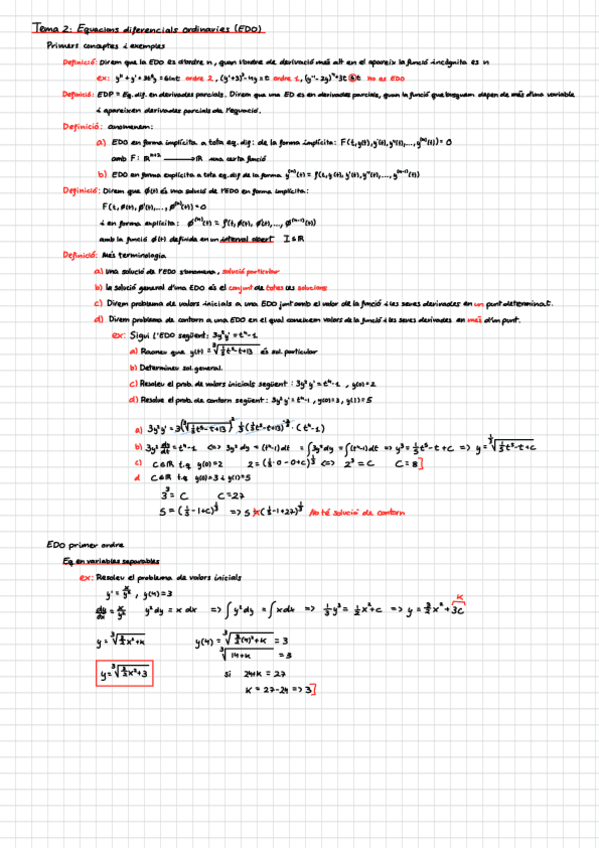 Tema 2: Equacions diferencials ordinaries (EDO)
Primers conceptes i exemples
Definició: Direm que la EDO es d'ordre n, quan l'ordre de derivació més alt en el apareix la funció incògnita es n
ex: y'' + y' + 36y = 6int ordre 2, (y'+3)²-4y=t ordre 1, (y''-2y)⁴+3t t no es EDO
Definició: EDP = Eq. dif. en derivades parcials. Direm que una ED es en derivades parcials, quan la funció que busquem depen de més d'una variable
i apareixen derivades parcials de l'equació.
Definició: anomenem:
a) EDO en forma implícita a tota eq. dif: de la forma implícita: F(t, y(t), y'(t), y''(t), ..., y⁽ⁿ⁾(t)) = 0
amb F: ℝⁿ⁺² → ℝ una certa funció
b) EDO en forma explícita a tota eq. dif de la forma y⁽ⁿ⁾(t) = f(t, y(t), y'(t), y''(t), ..., y⁽ⁿ⁻¹⁾(t))
Definició: Direm que ϕ(t) és una solució de l'EDO en forma implícita:
F(t, ϕ(t), ϕ'(t), ..., ϕ⁽ⁿ⁾(t)) = 0
i en forma explícita: ϕ⁽ⁿ⁾(t) = f(t, ϕ(t), ϕ'(t), ..., ϕ⁽ⁿ⁻¹⁾(t))
amb la funció ϕ(t) definida en un interval obert I⊆ℝ
Definició: Més terminologia
a) Una solució de l'EDO s'anomena, solució particular
b) la solució general d'una EDO és el conjunt de totes les solucions
c) Direm problema de valors inicials a una EDO junt amb el valor de la funció i les seves derivades en un punt determinat.
d) Direm problema de contorn a una EDO en el qual coneixem valors de la funció i les seves derivades en més d'un punt.
ex: Sigui l'EDO següent: 3y²y' = t⁴-1
a) Raoneu que y(t) = ∛(1/5t⁵-t+13) és sol. particular
b) Determineu sol. general
c) Resoleu el prob. de valors inicials següent: 3y²y' = t⁴-1, y(0)=2
d) Resolve el prob. de contorn següent: 3y²y' = t⁴-1, y(0)=3, y(1)=5
a) 3y²y' = 3(∛(1/5t⁵-t+13))² · 1/3(1/5t⁵-t+13)^(-2/3) · (t⁴-1)
b) 3y² dy/dt = t⁴-1 <=> 3y²dy = (t⁴-1)dt = ∫3y²dy = ∫(t⁴-1)dt => y³ = 1/5t⁵-t+C => y = ∛(1/5t⁵-t+C)
c) C∈ℝ t.q y(0)=2 2=(1/5·0-0+C)^(1/3) <=> 2³=C C=8]
d C∈ℝ t.q y(0)=3 i y(1)=5
3³ = C C=27
5 = (1/5-1+C)^(1/3) => 5 ≠ (1/5-1+27)^(1/3) No té solució de contorn
EDO primer ordre
Eq en variables separables
ex: Resoleu el problema de valors inicials
y' = x/y², y(4)=3
dy/dx = x/y² y²dy = x dx => ∫y²dy = ∫xdx => 1/3y³ = 1/2x²+C => y = 3/2x² + 3C
K
y = ∛(3/2x²+K) y(4) = ∛(3/2(4)²+K) = 3
∛(14+K) = 3
y = ∛(3/2x²+3) si 24+K = 27
K = 27-24 => 3]